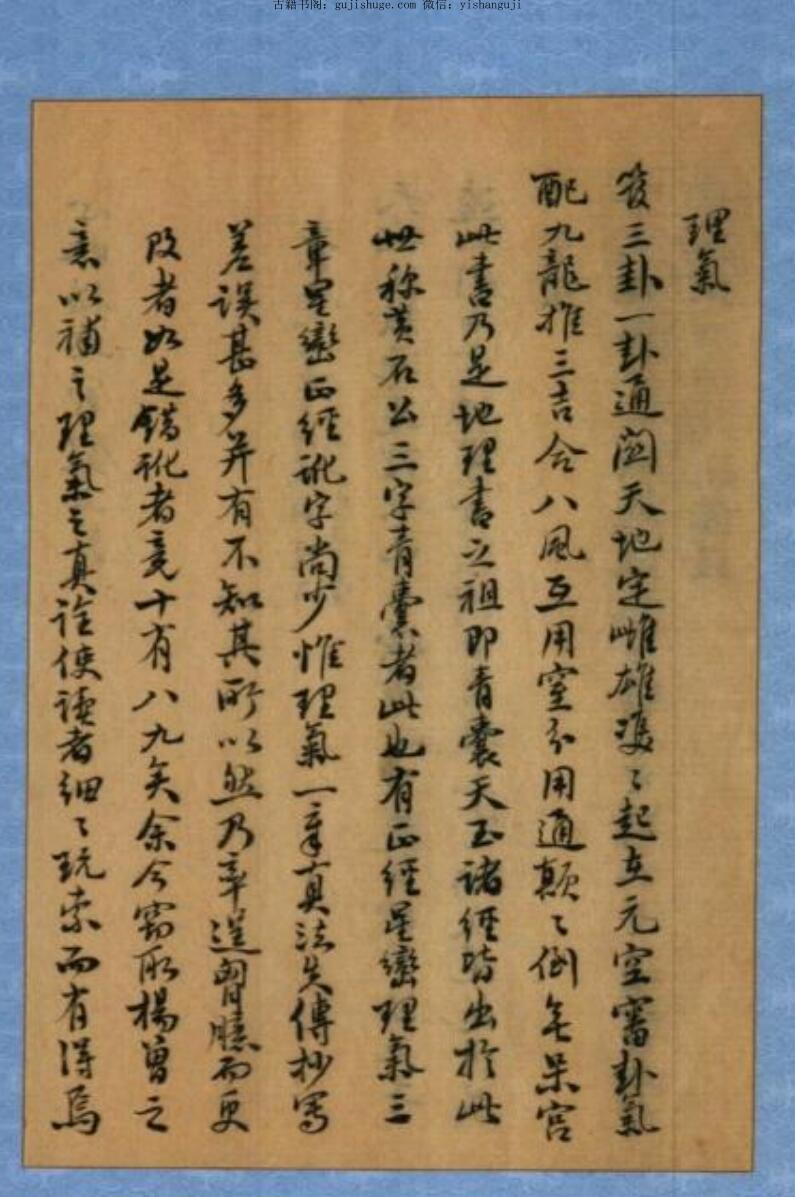 古籍书阁：gujishuge.com 微信：yishanguji
理氣
三卦一卦通関天地定雌雄雙〻起立元空審卦氣
配九龍推三吉合八風互用窒不用通顛〻倒無呆宮
此書乃是地理書之祖即青囊天玉諸經皆出於此
世称黄石公三字青囊者此也有正經星巒理氣三
章星巒正經訛字尚少惟理氣一章真法失傳抄寫
差误甚多并有不知其所以然乃率逞胷臆而更
改者如是錯訛者竟十有八九矣余今窃取楊曾之
意以補之理氣之真詮使读者细〻玩索而有得焉